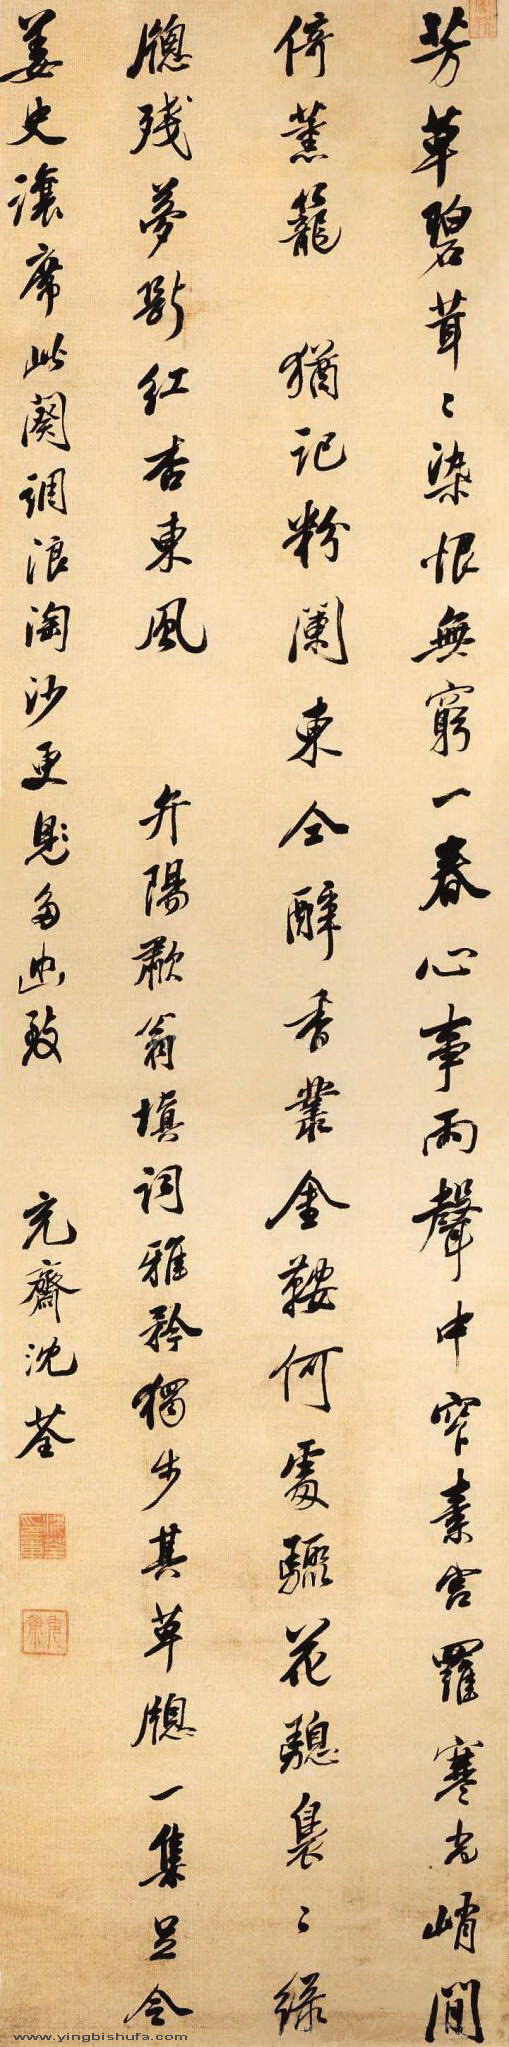 芳草碧茸〻染恨無窮一春心事雨聲中窄素宮羅寒尚峭閒
倚薰籠 猶記粉闌東同醉香叢金鞍何處驟花驄裊〻綠
牕殘夢斷紅杏東風 弁陽歗翁填詞雅矜獨步其草牕一集足令
姜史讓席此闋調浪淘沙更思多幽致 充齋沈荃
www.yingbishufa.com